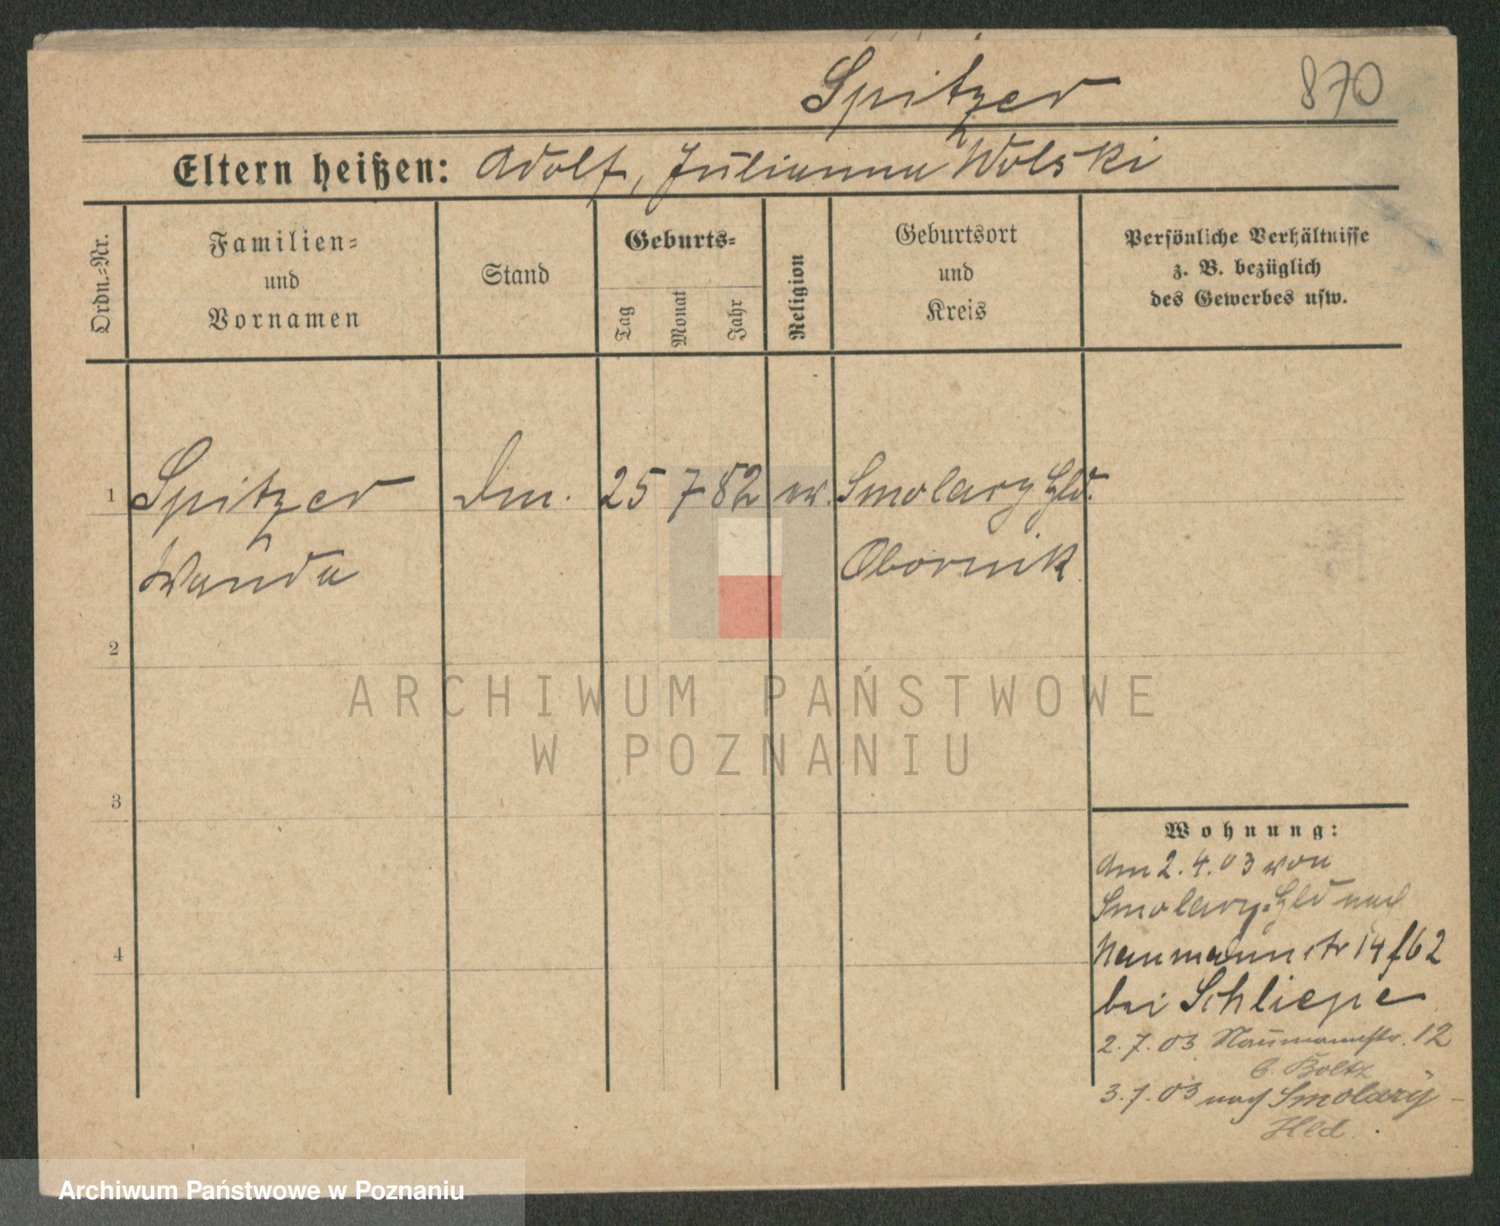 Spitzer
870
Eltern heißen: Adolf, Julianna Wolski
Ordn.-Nr.
Familien-
und
Vornamen
Stand
Geburts-
Tag
Monat
Jahr
Religion
Geburtsort
und
Kreis
Persönliche Verhältnisse
z. B. bezüglich
des Gewerbes usw.
1
Spitzer
Dm.
25
7
82
ev.
Smolary Hld.
Wanda
Obornik
2
ARCHIWUM PAŃSTWOWE
W POZNANIU
3
4
Wohnung:
Am 2.4.03 von
Smolary-Hld nach
Naumannstr 14 f62
bei Schliepe
2.7.03 Naumannstr. 12
b. Boltz
3.7.03 nach Smolary-
Hld.
Archiwum Państwowe w Poznaniu